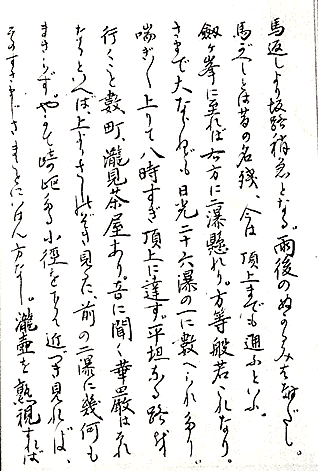 馬返しより坂路稍急となる。雨後のぬかるみ甚だし。
馬がへしとは昔の名残、今は頂上までも通ふといふ。
劔ヶ峯に至れば右方に二瀑懸れり。方等般若これなり。
さまで大ならねども日光二十六瀑の一に数へられ居り
喘ぎ〳〵上りて八時すぎ頂上に達す。平坦なる路を
行くこと数町、瀧見茶屋あり。音に聞く華厳はそれ
なりといへば、上りさしのぞき見るに、前の二瀑に幾何も
まさらず。やがて崎嶇たる小径をおりて近づき見れば、
そのすさまじさまことにいはん方なし。瀧壺を熟視すれば